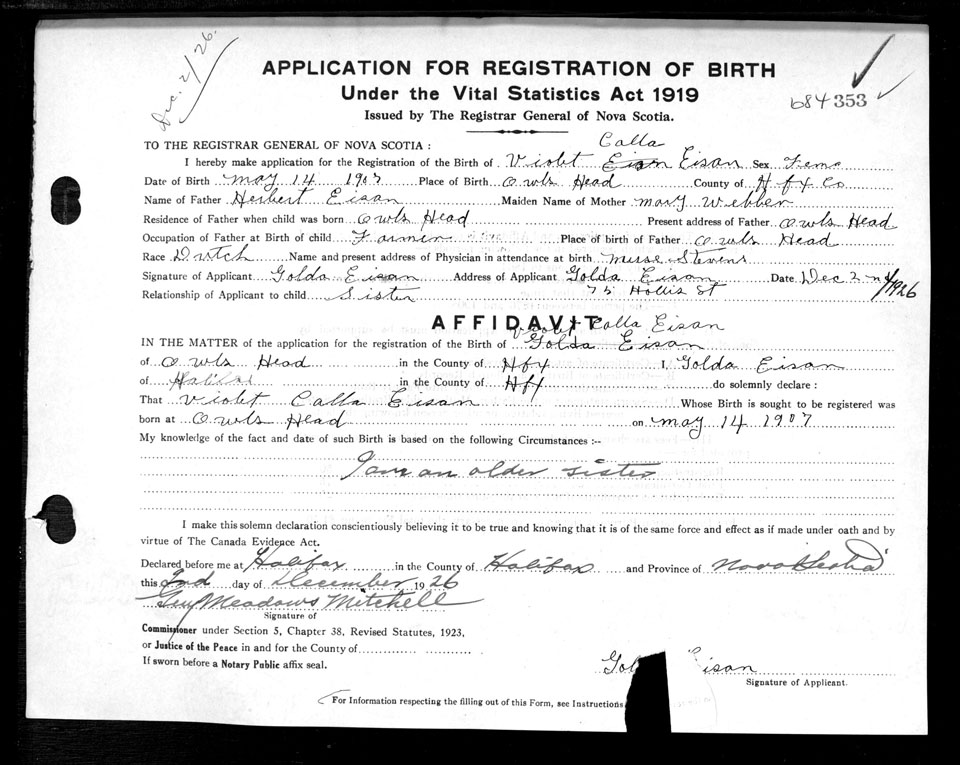 Dec. 2/26.
APPLICATION FOR REGISTRATION OF BIRTH
Under the Vital Statistics Act 1919
684 353
Issued by The Registrar General of Nova Scotia.
TO THE REGISTRAR GENERAL OF NOVA SCOTIA :
Calla
I hereby make application for the Registration of the Birth of Violet Eisan Eisan Sex Fema
Date of Birth May 14 1907 Place of Birth Owls Head County of Hfx Co
Name of Father Herbert Eisan Maiden Name of Mother Mary Webber
Residence of Father when child was born Owls Head Present address of Father Owls Head
Occupation of Father at Birth of child Farmer Place of birth of Father Owls Head
Race Dutch Name and present address of Physician in attendance at birth Stevens
Signature of Applicant Golda Eisan Address of Applicant Golda Eisan Date Dec 2nd/1926
Relationship of Applicant to child Sister 75 Hollis St
AFFIDAVIT
Violet Calla Eisan
IN THE MATTER of the application for the registration of the Birth of Golda Eisan
of Owls Head in the County of Hfx I, Golda Eisan
of Halifax in the County of Hfx do solemnly declare :
That Violet Calla Eisan Whose Birth is sought to be registered was
born at Owls Head on May 14 1907
My knowledge of the fact and date of such Birth is based on the following Circumstances :--
I am an older sister
I make this solemn declaration conscientiously believing it to be true and knowing that it is of the same force and effect as if made under oath and by
virtue of The Canada Evidence Act.
Declared before me at Halifax in the County of Halifax and Province of Nova Scotia
this 2nd day of December 1926
Meadows Mitchell
Signature of
Commissioner under Section 5, Chapter 38, Revised Statutes, 1923,
or Justice of the Peace in and for the County of
If sworn before a Notary Public affix seal.
Gol Eisan
Signature of Applicant.
For Information respecting the filling out of this Form, see Instructions